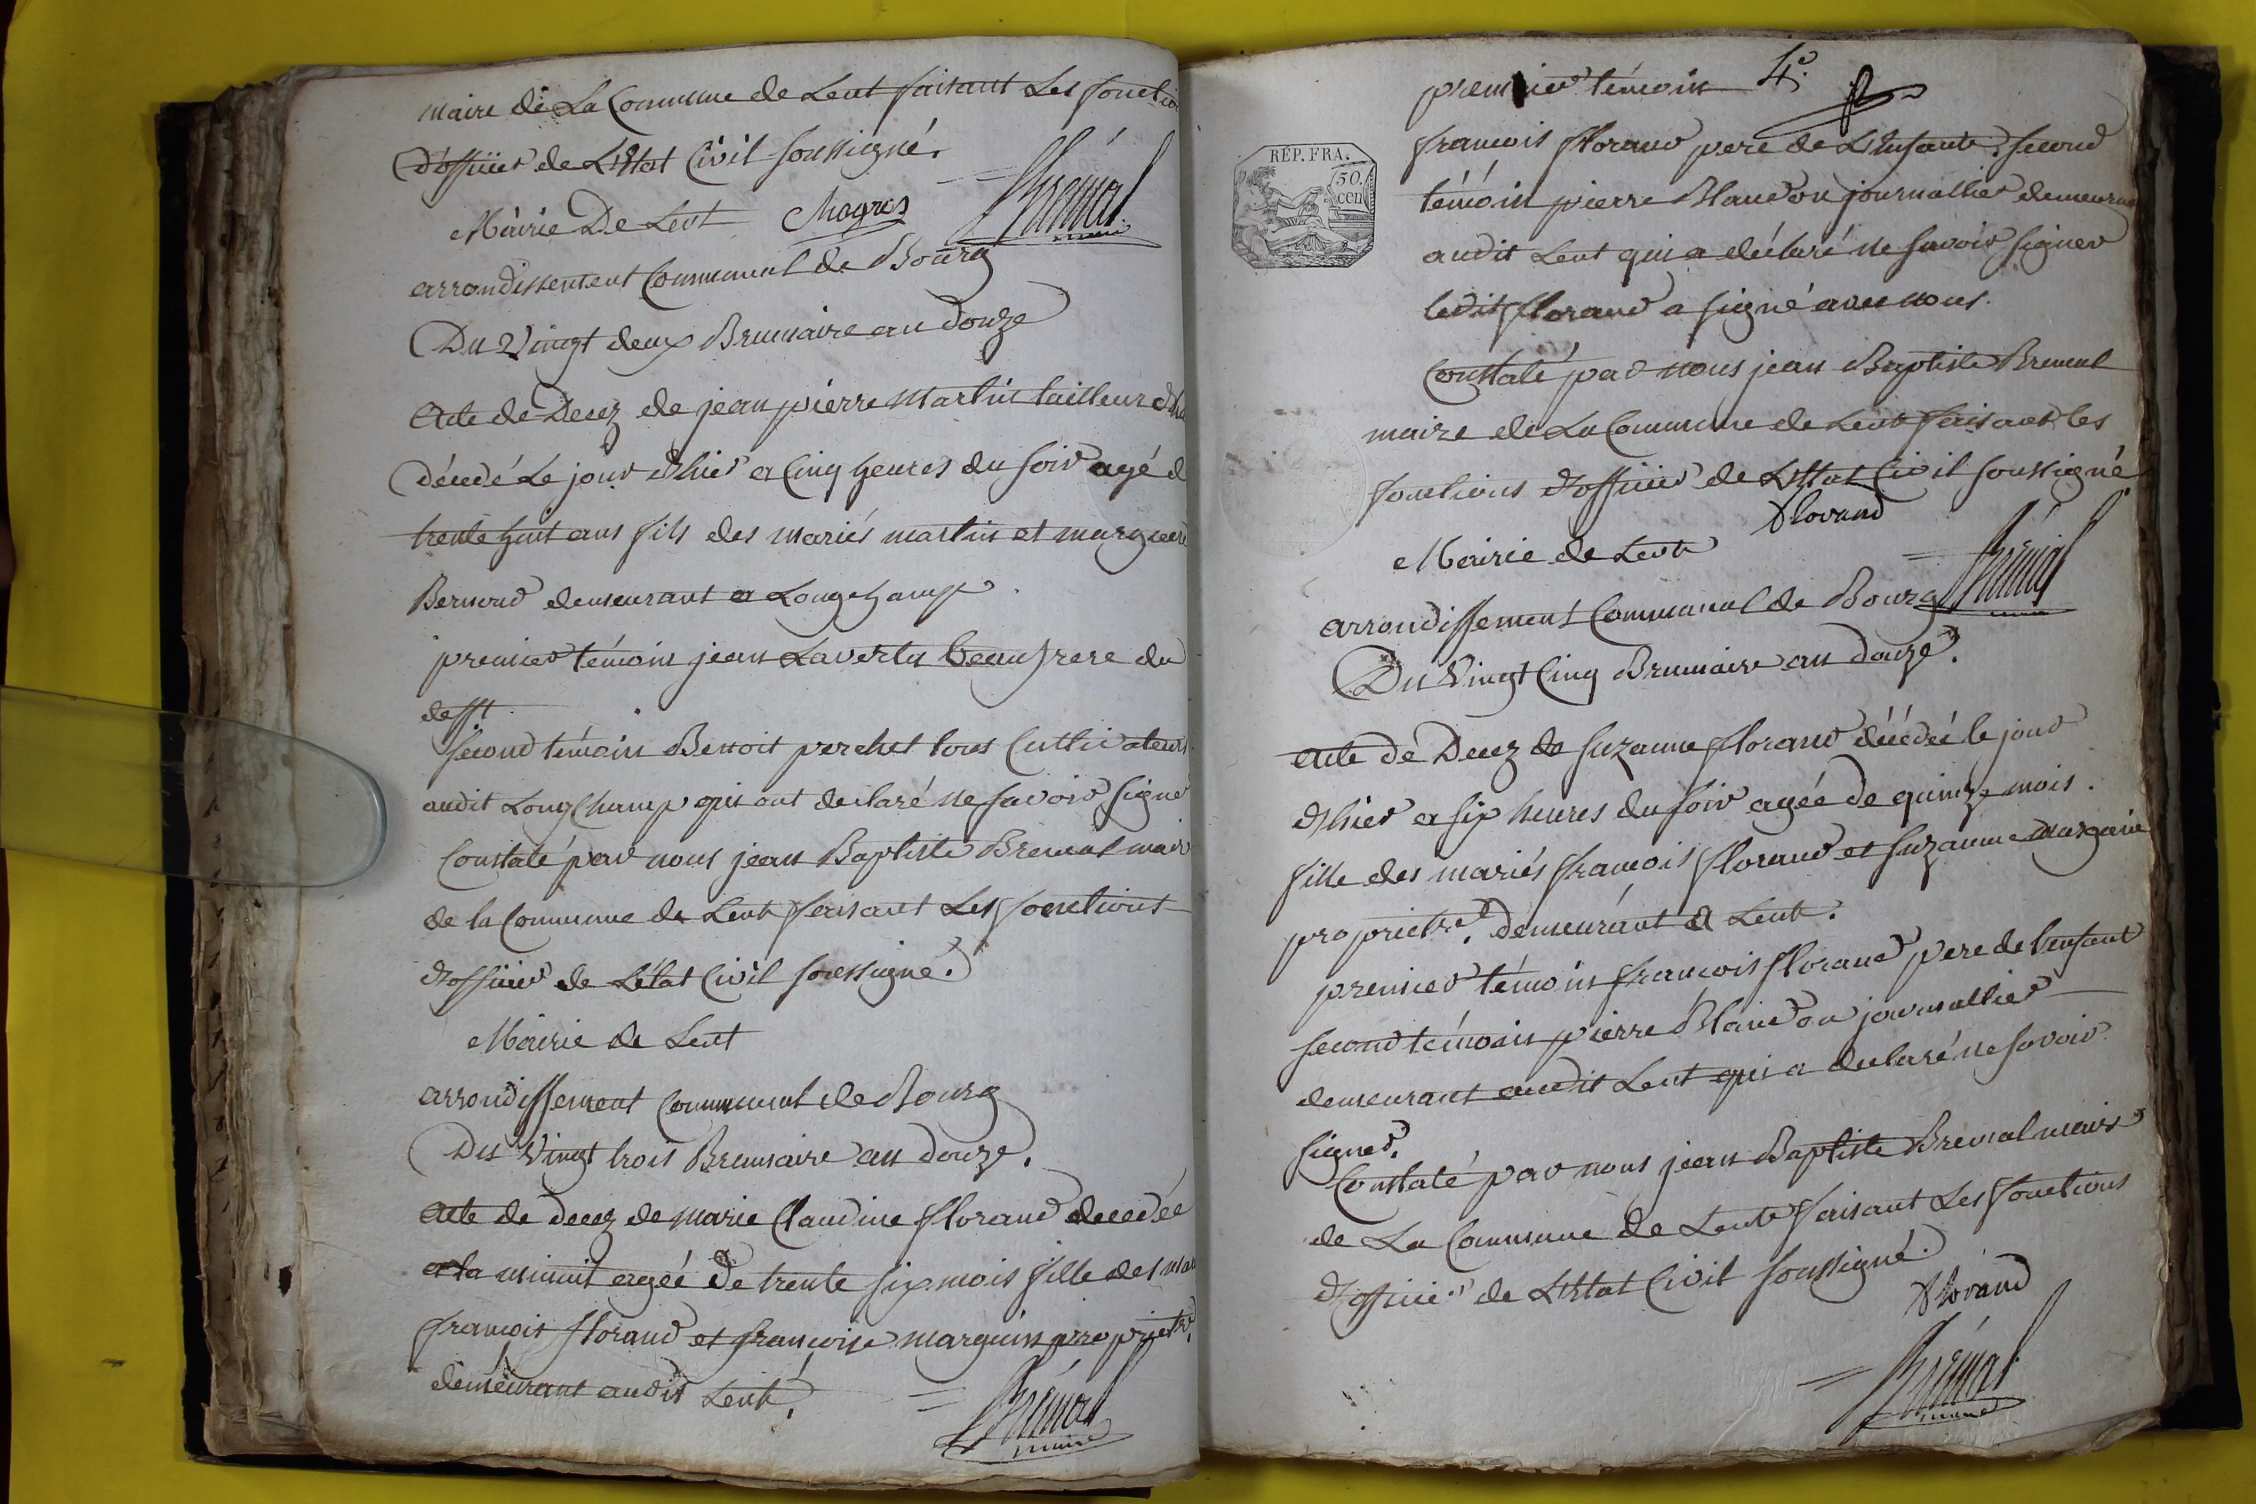 maire de La Commune de Lent faisant Les fonctio
d'officier de L'Etat Civil soussigné.
Mairie De Lent Mogros Brémal maire
arrondissement Communal de Bourg
Du Vingt deux Brumaire an douze
Acte de Decez de jean pierre Martin tailleur d'ha
décédé Le jour d'hier a Cinq heures du soir agé d
trente huit ans fils des mariés martin et marguerit
Bernoud demeurant a Longchamp
premier témoin jean Lavertu beaufrere du
deff.t
second témoin Benoit perchet tous Cultivateurs
audit Longchamp qui ont declaré ne savoir signer
Constaté par nous jean Baptiste Bremal maire
de la Commune de Lent faisant Les fonctions
d'officier de L'état Civil soussigné.
Mairie de Lent
arrondissement communal de Bourg
Du Vingt trois Brumaire an douze.
Acte de decez de marie Claudine florand decedée
a la minuit agée De trente six mois fille des mar
françois florand et françoise marguin propriet.re
demeurant audit Lent.
Brémal
maire
premier témoin 4.e
francois florand pere de L'Enfant. second
REP. FRA.
50.
cen
témoin pierre Blandon journallier demeurant
audit Lent qui a déclaré ne savoir signer
ledit florand a signé avec nous.
Constaté par nous jean Baptiste Bremal
maire de La Commune de Lent faisant les
fonctions d'officier de L'Etat Civil soussigné
florand
Mairie de Lent Brémal
arrondissement Communal de Bourg
Du Vingt Cinq Brumaire an douze.
Acte de Decez de suzanne florand décédée le jour
d'hier a six heures du soir agée de quinze mois.
fille des mariés francois florand et suzanne marguin
propriet.re demeurant a Lent.
premier témoin francois florand pere de l'enfant
second témoin pierre Blandon journallier
demeurant audit Lent qui a declaré ne savoir
signer.
Constaté par nous jean Baptiste Bremal maire
de La Commune de Lent faisant Les fonctions
d'officier de L'Etat Civil soussigné.
florand
Brémal
maire